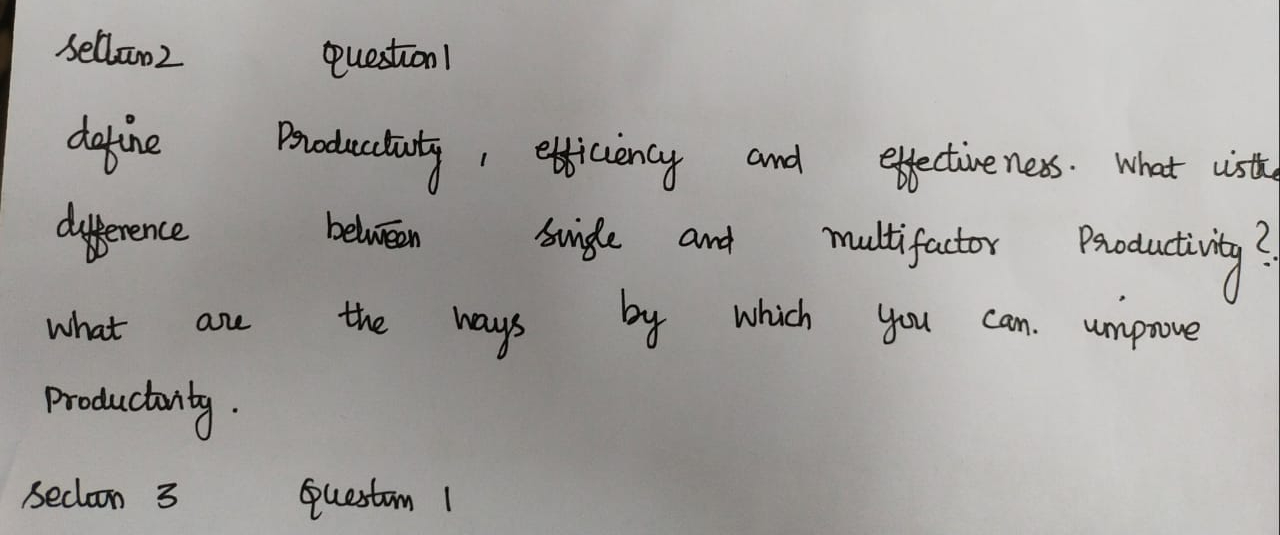 section 2 Question 1
define Productivity, efficiency and effectiveness. What is the
difference between single and multifactor Productivity?.
What are the ways by which you can. improve
Productivity.
section 3 Question 1